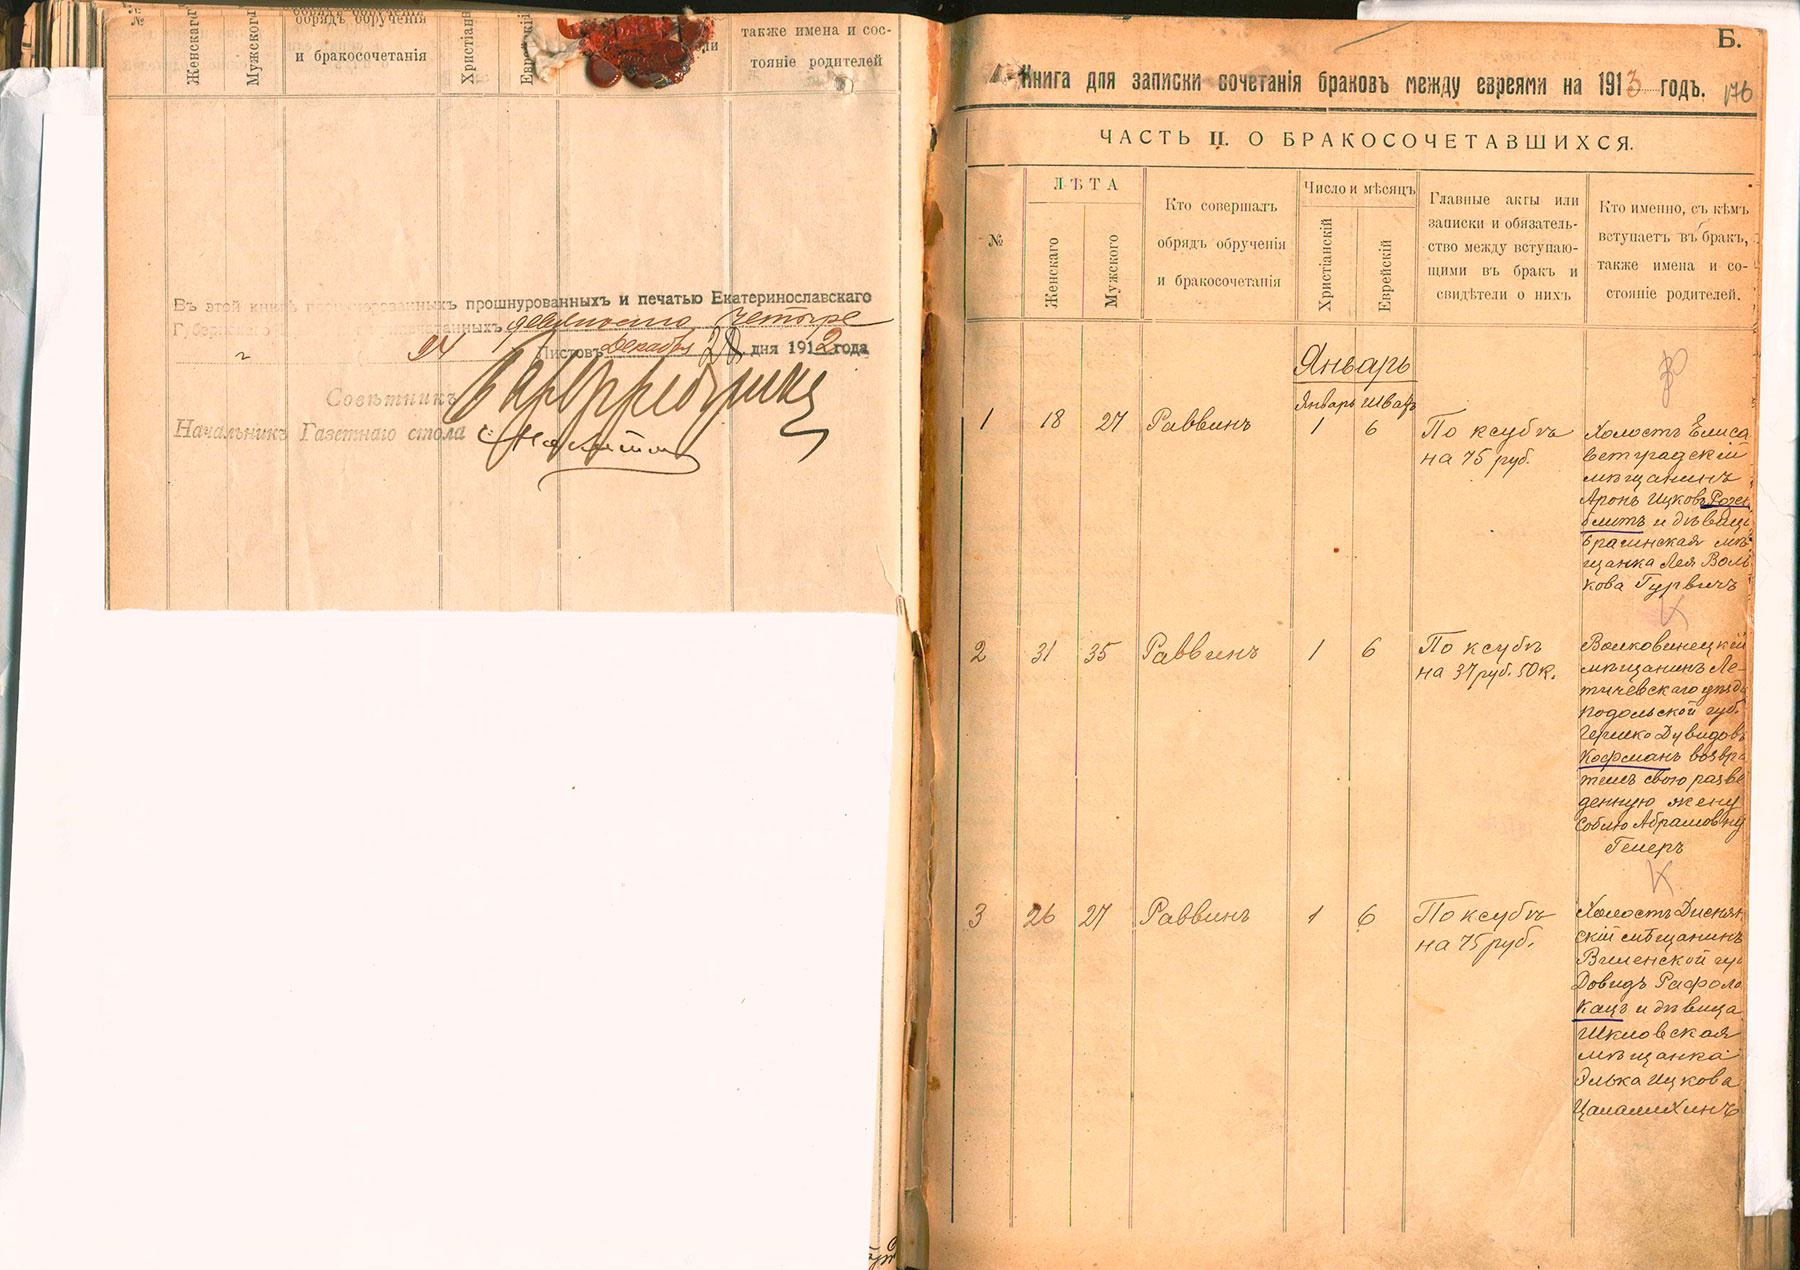 №
№
Женскаго
Мужского
обрядъ обрученія
и бракосочетанія
Христіан
также имена и сос-
тояніе родителей
Въ этой книгѣ прошнурованныхъ и печатью Екатеринославскаго
девяносто четыре
94 Листовъ Декабря 28 дня 1912 года
Совѣтникъ
Начальникъ Газетнаго стола
Б.
Книга для записки сочетанія браковъ между евреями на 1913 годъ. 176
ЧАСТЬ II. О БРАКОСОЧЕТАВШИХСЯ.
№
ЛѢТА
Женскаго
Мужского
Кто совершалъ
обрядъ обрученія
и бракосочетанія
Число и мѣсяцъ
Христіанскій
Еврейскій
Главные акты или
записки и обязатель-
ство между вступаю-
щими въ бракъ и
свидѣтели о нихъ
Кто именно, съ кѣмъ
вступаетъ въ бракъ,
также имена и со-
стояніе родителей.
Январь
Январь Шватъ
1 18 27 Раввинъ 1 6
По ксубѣ
на 75 руб.
Холостъ Елиса
ветградскій
мѣщанинъ
Аронъ Ицковъ Розен
блитъ и дѣвица
брагинская мѣ
щанка Лея Воль
кова Гурвичъ
2 31 35 Раввинъ 1 6
По ксубѣ
на 37 руб. 50 к.
Волковинецкій
мѣщанинъ Ле-
тичевскаго уѣзда
подольской губ.
Гершко Дувидовъ
Кофманъ возвра
тилъ свою разве
денную жену
Соблю Абрамовну
Гелеръ
3 26 27 Раввинъ 1 6
По ксубѣ
на 75 руб.
Холостъ Диснян
скій мѣщанинъ
Виленской гу
Довидъ Рафоло
Кацъ и дѣвица
Шкловская
мѣщанка
Элька Ицкова